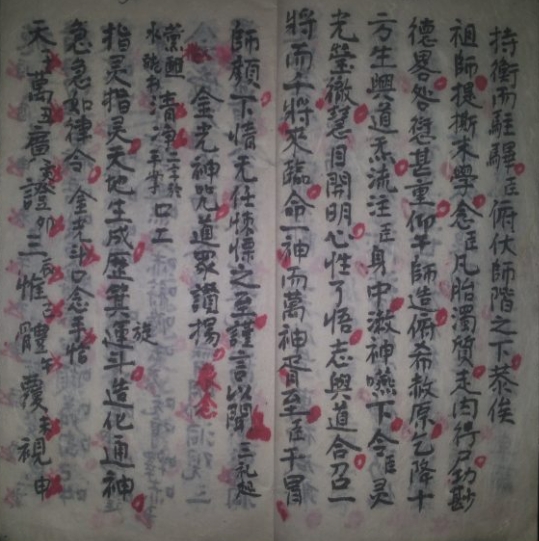 持衡而駐驛臣俯伏師階之下恭俟
祖師提撕末學念臣凡胎濁質走肉行尸功尠
德畧咎愆甚重仰干師造俯希赦原乞降十
方生興道炁流注臣身中激神嚥下令臣灵
光瑩徹慧目開明心性了悟志與道合召一
將而千將來臨命一神而萬神胥至臣干冒
師顏下情无任悚慄之至謹言以聞 三礼起
清淨 口工
金光神咒道眾讚揚
指灵指灵天地生成歷箕運斗旋造化通神
急急如律令 金光斗口念手恰
天 萬 廣 證 三惟 體 覆 視申